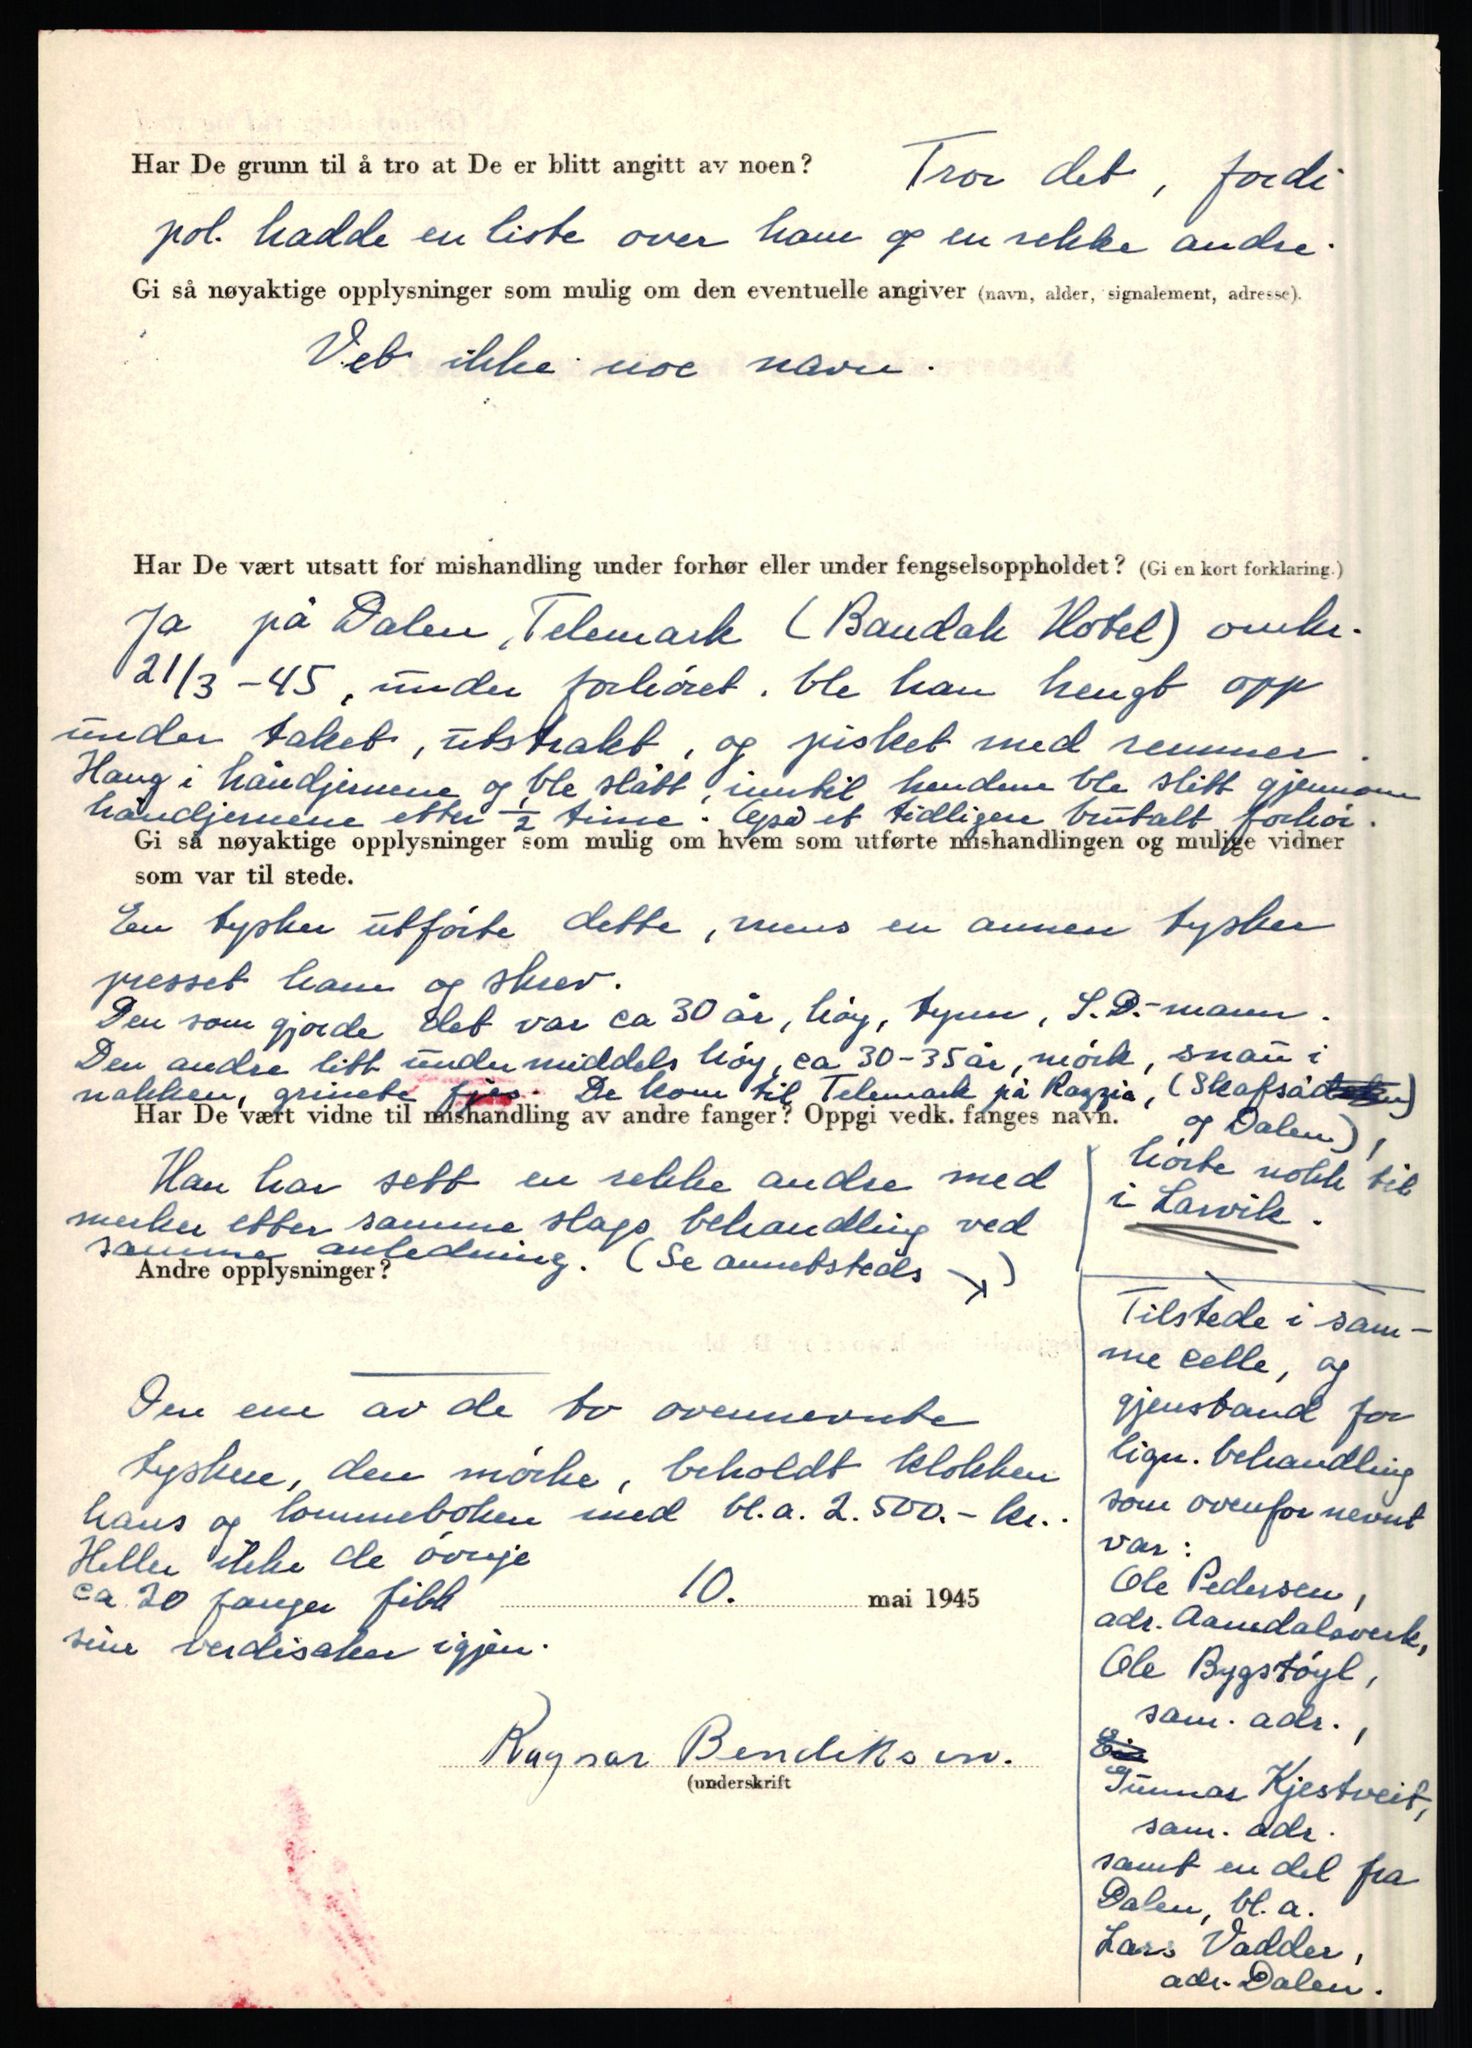 Har De grunn til å tro at De er blitt angitt av noen? Tror det, fordi
pol. hadde en liste over ham og en rekke andre.
Gi så nøyaktige opplysninger som mulig om den eventuelle angiver (navn, alder, signalement, adresse).
Vet ikke noe navn.
Har De vært utsatt for mishandling under forhør eller under fengselsoppholdet? (Gi en kort forklaring.)
Ja på Dalen, Telemark (Bandak Hotel) omkr.
21/3-45, under forhöret. ble han hengt opp
under taket, utstrakt, og pisket med remmer.
Hang i håndjernene og ble slått, inntil hendene ble slitt gjennom
håndjernene etter ½ time. Også et tidligere brutalt forhör.
Gi så nøyaktige opplysninger som mulig om hvem som utførte mishandlingen og mulige vidner
som var til stede.
En tysker utförte dette, mens en annen tysker
presset ham og skrev.
Den som gjorde det var ca 30 år, höy, tynn, S.D.-mann.
Den andre litt under middels höy, ca 30-35 år, mörk, snau i
nakken, grinete fjes. De kom til Telemark på Razzia, (Skafså
og Dalen),
hörte nokk til
i Larvik.
Har De vært vidne til mishandling av andre fanger? Oppgi vedk. fanges navn.
Han har sett en rekke andre med
merker etter samme slags behandling ved
samme anledning. (Se annetsteds ↘)
Andre opplysninger?
Den ene av de to ovennevnte
tyskere, den mörke, beholdt klokken
hans og lommeboken med bl.a. 2.500.- kr..
Heller ikke de övrige
ca 20 fanger fikk
sine verdisaker igjen.
10. mai 1945
Ragnar Bendiksen.
(underskrift
Tilstede i sam-
me celle, og
gjenstand for
lign. behandling
som ovenfor nevnt
var:
Ole Pedersen,
adr. Aamdalsverk,
Ole Bygstöyl,
sam. adr.,
Gunnar Kjestveit,
sam. adr.
samt en del fra
Dalen, bl.a.
Lars Vadder,
adr. Dalen.